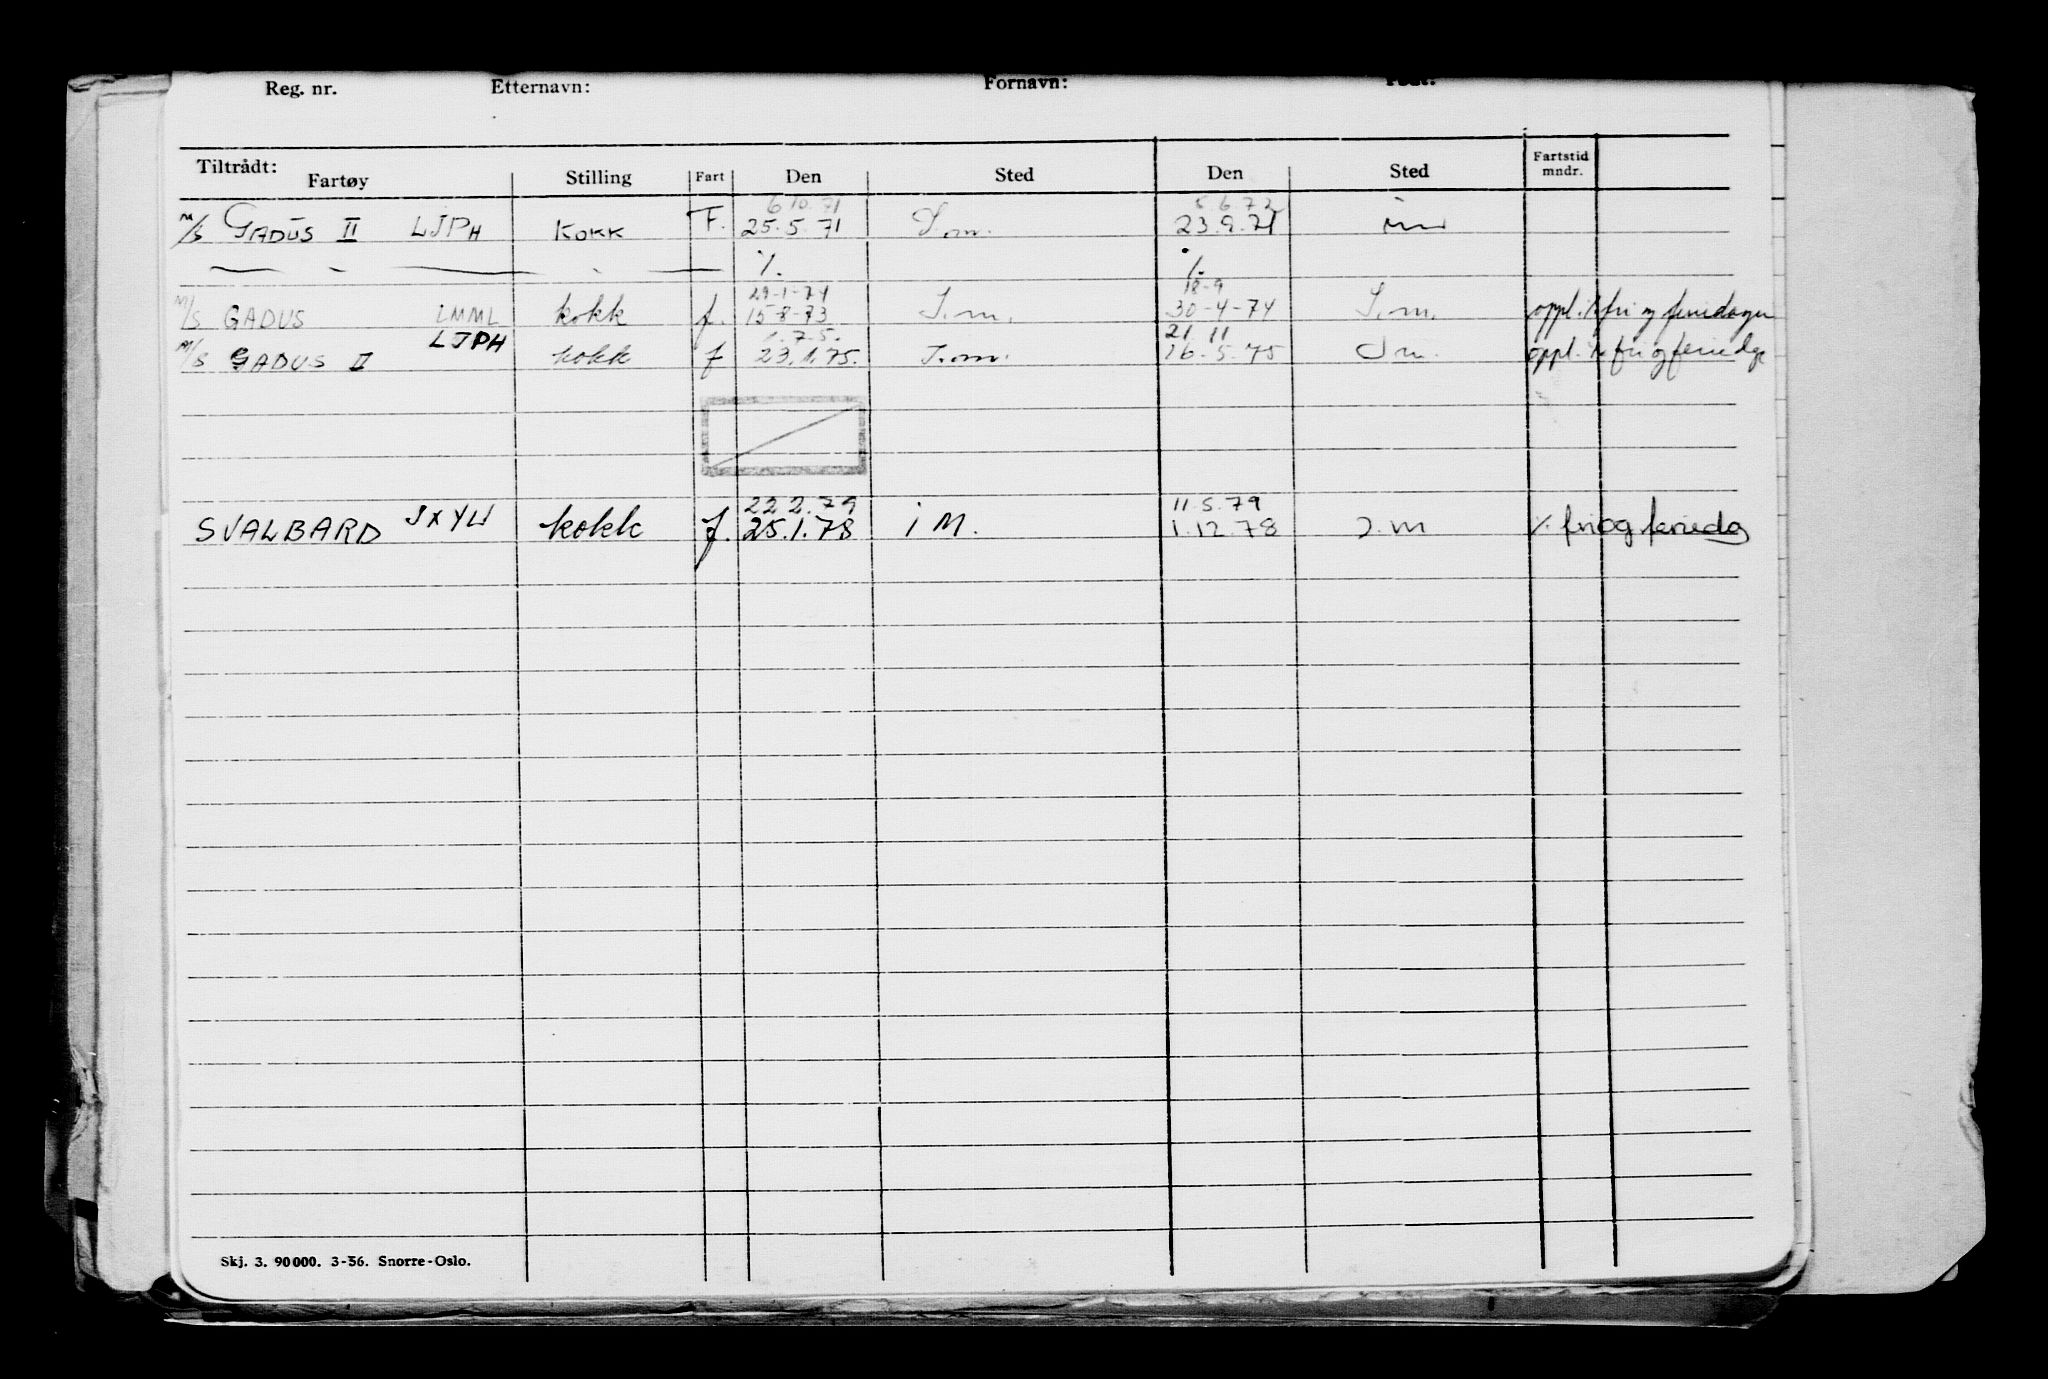 Reg. nr. Etternavn: Fornavn:
Tiltrådt: Fartøy Stilling Fart Den Sted Den Sted Fartstid mndr.
6 10. 71 5. 6. 72
M/S GADUS II LJPH KOKK F. 25. 5. 71 I.m. 23. 9. 71 im
— " — " — % %
29-1-74 18-9
M/S GADUS LMML kokk f. 15-8-73 I.m. 30-4-74 I.m. oppl. % fri og feriedager
1. 7. 5. 21. 11
M/S GADUS II LJPH kokk f 23.1.75. I.m. 16-5-75 I m. oppl. % fri og feriedg
22 2. 79 11. 5. 79
SVALBARD JXYU kokk f. 25.1.78 i M. 1.12.78 I.m %. fri og feriedg
Skj. 3. 90 000. 3-56. Snorre-Oslo.